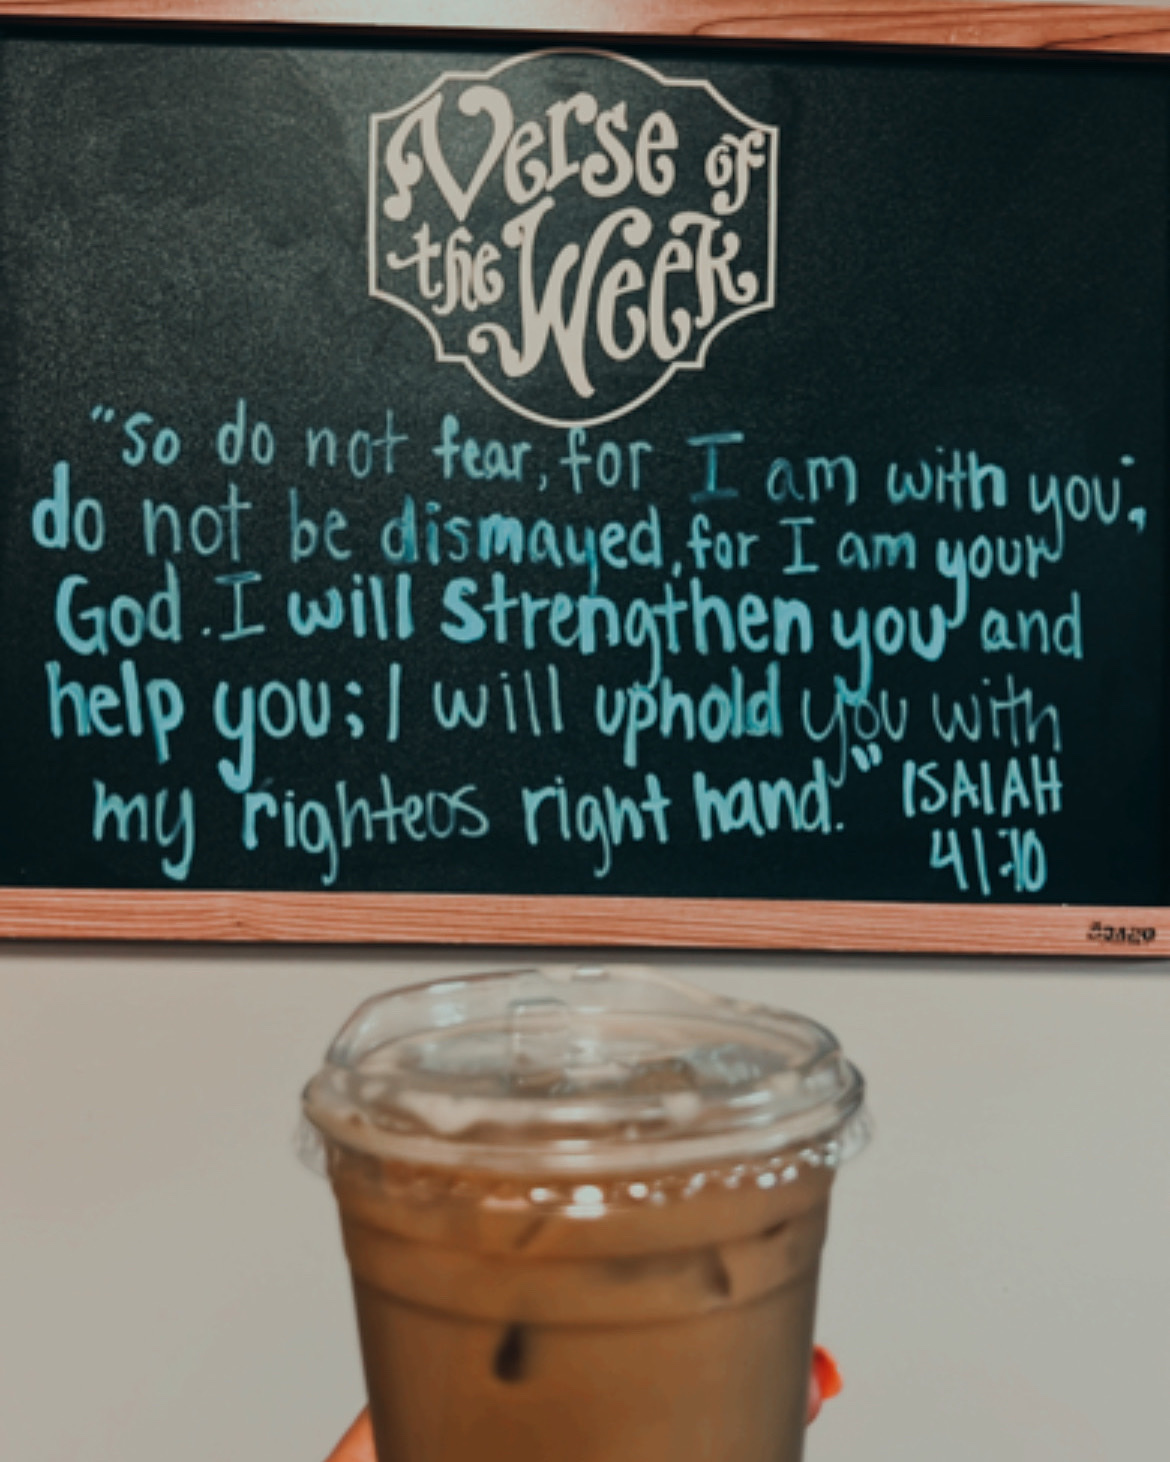 Verse of
the Week
"So do not fear, for I am with you;
do not be dismayed, for I am your
God. I will strengthen you and
help you; I will uphold you with
my righteos right hand." ISAIAH
41:10